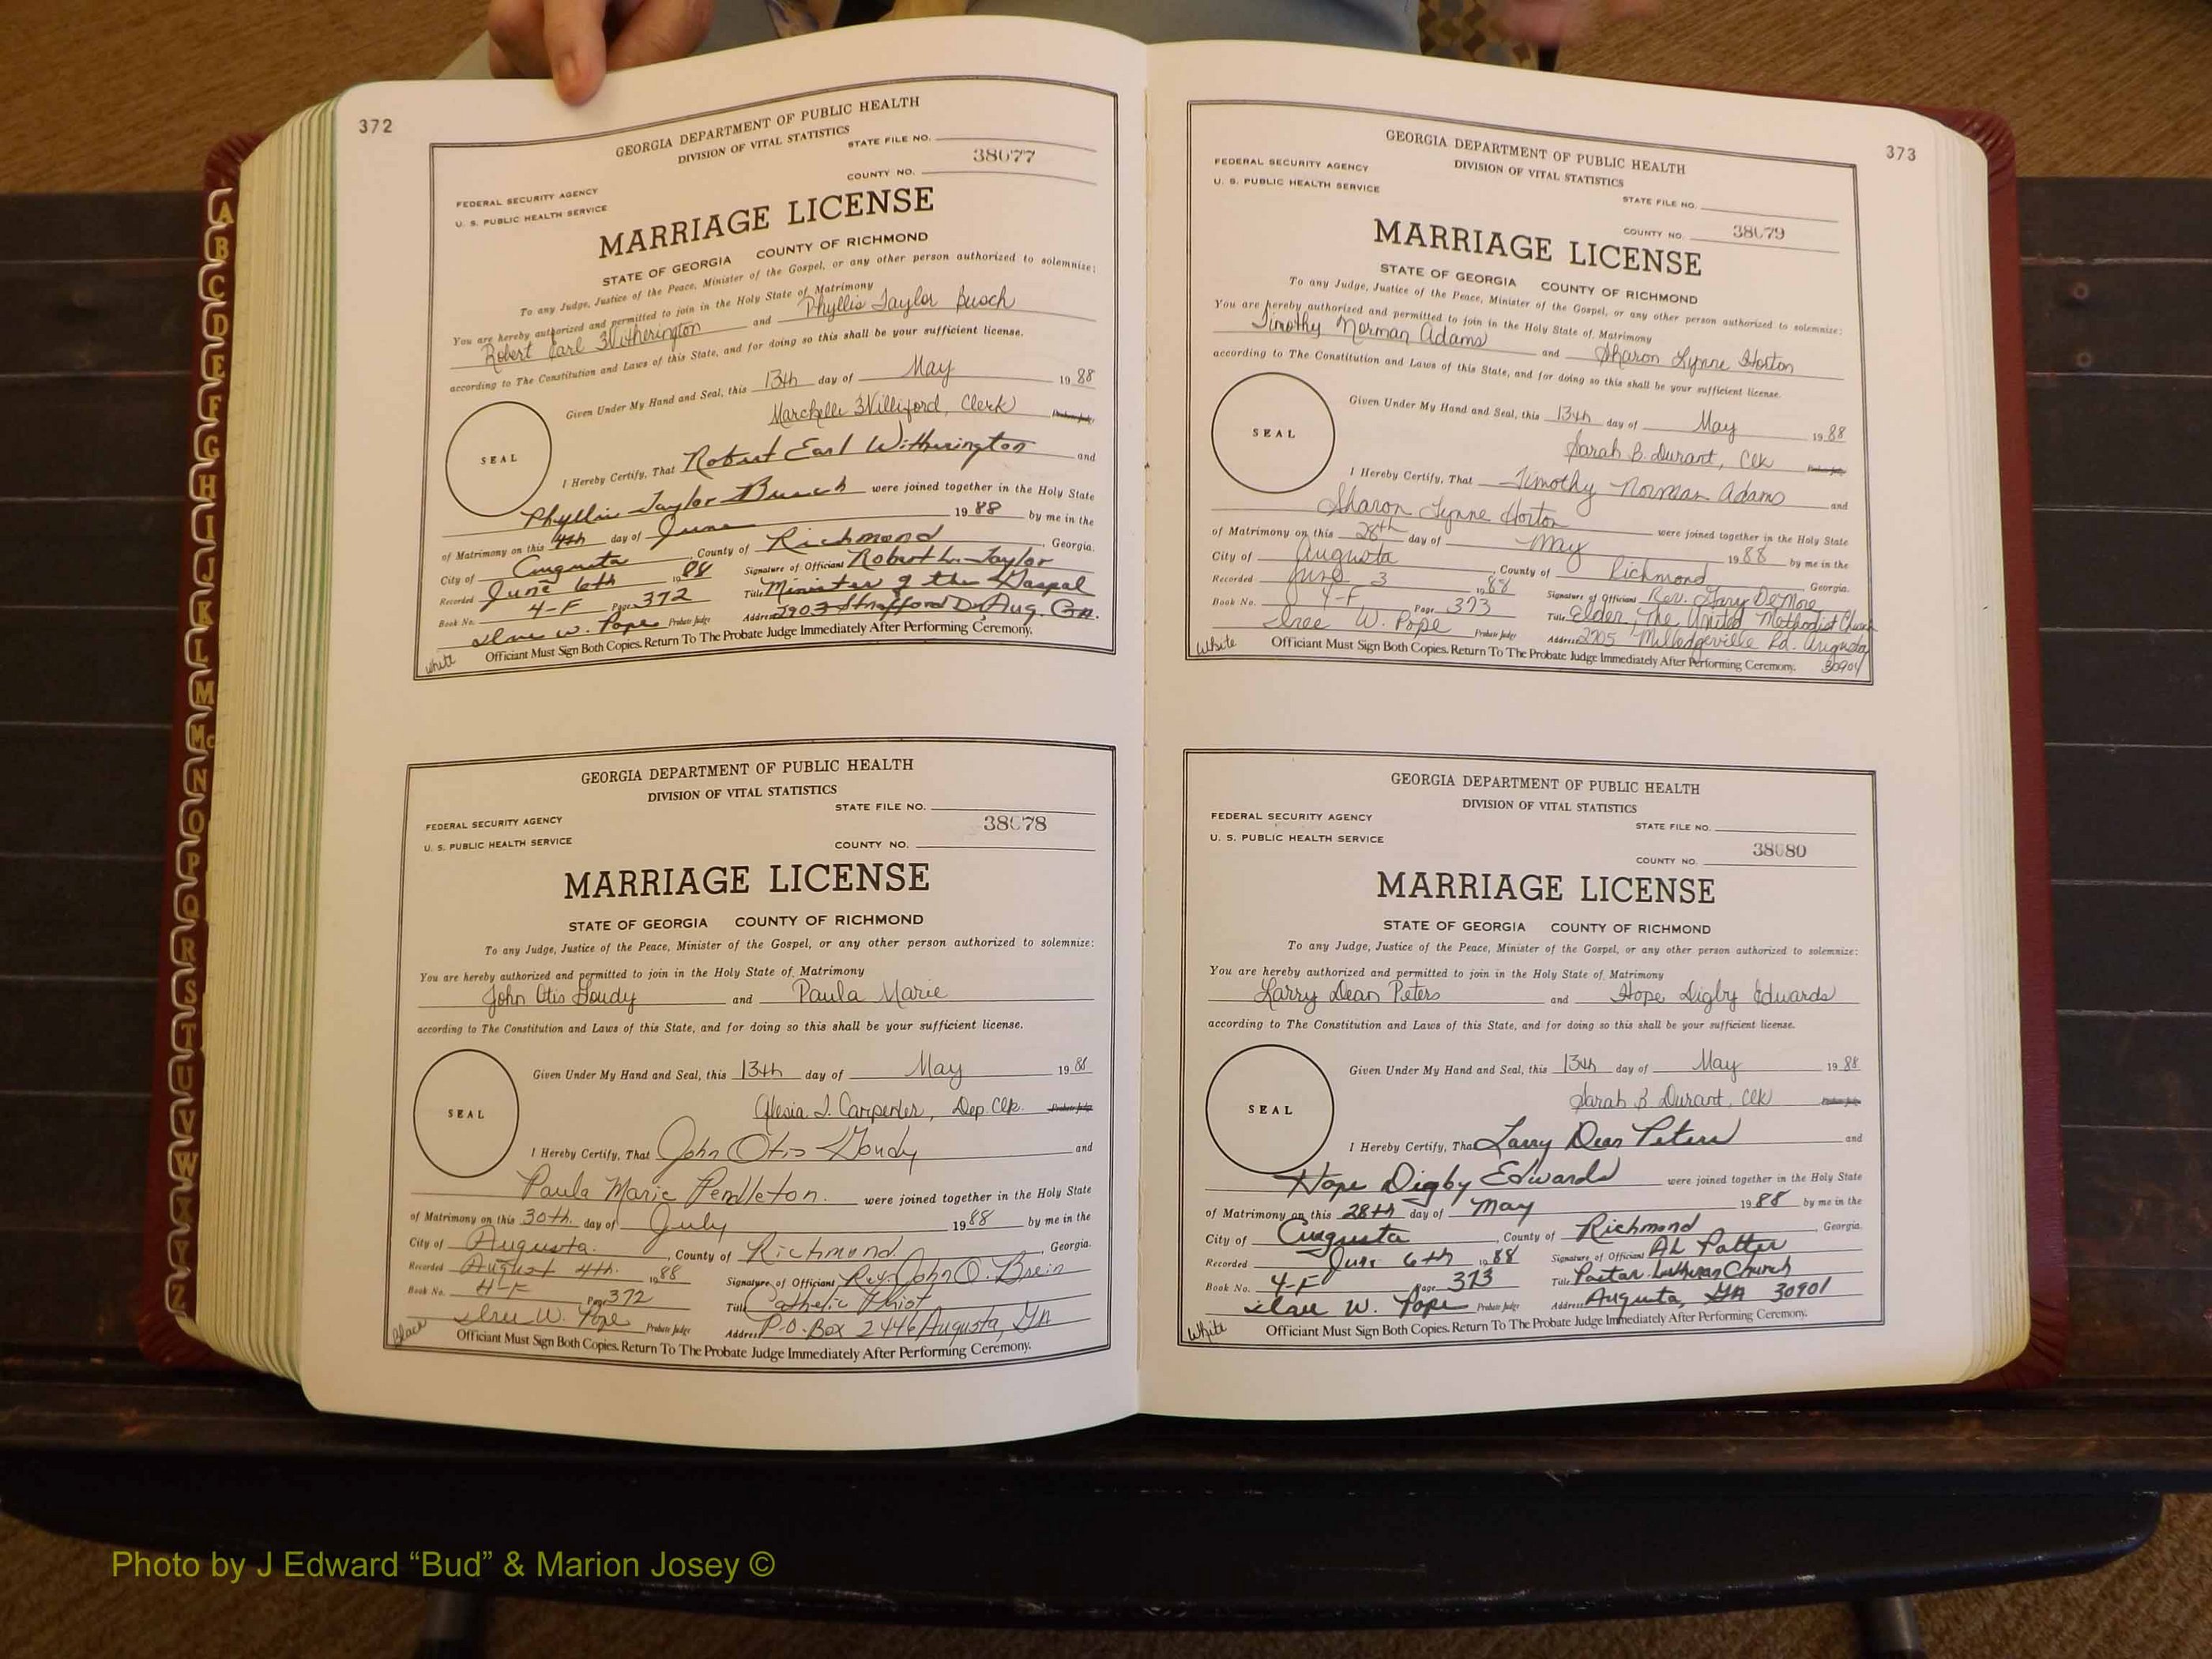 372
GEORGIA DEPARTMENT OF PUBLIC HEALTH
DIVISION OF VITAL STATISTICS
STATE FILE NO.
38077
COUNTY NO.
FEDERAL SECURITY AGENCY
U. S. PUBLIC HEALTH SERVICE
MARRIAGE LICENSE
STATE OF GEORGIA COUNTY OF RICHMOND
To any Judge, Justice of the Peace, Minister of the Gospel, or any other person authorized to solemnize:
You are hereby authorized and permitted to join in the Holy State of Matrimony
Robert Earl Witherington and Phyllis Taylor Busch
according to The Constitution and Laws of this State, and for doing so this shall be your sufficient license.
Given Under My Hand and Seal, this 13th day of May 19 88
Marchelle Williford, Clerk Probate Judge
SEAL
I Hereby Certify, That Robert Earl Witherington and
Phyllis Taylor Busch were joined together in the Holy State
of Matrimony on this 4th day of June 19 88 by me in the
City of Augusta, County of Richmond, Georgia.
Recorded June 6th 19 88 Signature of Officiant Robert L. Taylor
Book No. 4-F Page 372 Title Minister of the Gospel
W. Pope Probate Judge Address 2903 Strafford Dr Aug. GA.
White Officiant Must Sign Both Copies. Return To The Probate Judge Immediately After Performing Ceremony.
GEORGIA DEPARTMENT OF PUBLIC HEALTH
DIVISION OF VITAL STATISTICS
STATE FILE NO.
38078
COUNTY NO.
FEDERAL SECURITY AGENCY
U. S. PUBLIC HEALTH SERVICE
MARRIAGE LICENSE
STATE OF GEORGIA COUNTY OF RICHMOND
To any Judge, Justice of the Peace, Minister of the Gospel, or any other person authorized to solemnize:
You are hereby authorized and permitted to join in the Holy State of Matrimony
John Otis Goudy and Paula Marie
according to The Constitution and Laws of this State, and for doing so this shall be your sufficient license.
Given Under My Hand and Seal, this 13th day of May 19 88
Alesia J. Carpenter, Dep. Clk. Probate Judge
SEAL
I Hereby Certify, That John Otis Goudy and
Paula Marie Pendleton. were joined together in the Holy State
of Matrimony on this 30th. day of July 19 88 by me in the
City of Augusta., County of Richmond., Georgia.
Recorded August 4th. 19 88 Signature of Officiant Rev. John O. Brein
Book No. 4-F Page 372 Title Catholic
W. Pope Probate Judge Address P.O. Box 2446 Augusta, GA
Black Officiant Must Sign Both Copies. Return To The Probate Judge Immediately After Performing Ceremony.
373
GEORGIA DEPARTMENT OF PUBLIC HEALTH
DIVISION OF VITAL STATISTICS
FEDERAL SECURITY AGENCY
U. S. PUBLIC HEALTH SERVICE
STATE FILE NO.
COUNTY NO. 38079
MARRIAGE LICENSE
STATE OF GEORGIA COUNTY OF RICHMOND
To any Judge, Justice of the Peace, Minister of the Gospel, or any other person authorized to solemnize:
You are hereby authorized and permitted to join in the Holy State of Matrimony
Timothy Norman Adams and Sharon Lynne Horton
according to The Constitution and Laws of this State, and for doing so this shall be your sufficient license.
Given Under My Hand and Seal, this 13th day of May 19 88
Sarah B. Durant, Clk Probate Judge
SEAL
I Hereby Certify, That Timothy Norman Adams and
Sharon Lynne Horton were joined together in the Holy State
of Matrimony on this 28th day of May 19 88 by me in the
City of Augusta, County of Richmond Georgia.
Recorded June 3 19 88 Signature of Officiant Rev. Gary DeMore
Book No. 4-F Page 373 Title Elder, The United Methodist Church
W. Pope Probate Judge Address 2205 Milledgeville Rd. Augusta
White Officiant Must Sign Both Copies. Return To The Probate Judge Immediately After Performing Ceremony. 30904
GEORGIA DEPARTMENT OF PUBLIC HEALTH
DIVISION OF VITAL STATISTICS
FEDERAL SECURITY AGENCY
U. S. PUBLIC HEALTH SERVICE
STATE FILE NO.
38080
COUNTY NO.
MARRIAGE LICENSE
STATE OF GEORGIA COUNTY OF RICHMOND
To any Judge, Justice of the Peace, Minister of the Gospel, or any other person authorized to solemnize:
You are hereby authorized and permitted to join in the Holy State of Matrimony
Larry Dean Peters and Hope Digby Edwards
according to The Constitution and Laws of this State, and for doing so this shall be your sufficient license.
Given Under My Hand and Seal, this 13th day of May 19 88
Sarah B Durant, Clk Probate Judge
SEAL
I Hereby Certify, That Larry Dean Peters and
Hope Digby Edwards were joined together in the Holy State
of Matrimony on this 28th day of May 19 88 by me in the
City of Augusta, County of Richmond, Georgia.
Recorded June 6th 19 88 Signature of Officiant
Book No. 4-F Page 373 Title Pastor Lutheran Church
W. Pope Probate Judge Address Augusta, GA 30901
White Officiant Must Sign Both Copies. Return To The Probate Judge Immediately After Performing Ceremony.
A
B
C
D
E
F
G
H
I
J
K
L
M
Mc
N
O
P
Q
R
S
T
U
V
W
X
Y
Z
Photo by J Edward “Bud” & Marion Josey ©